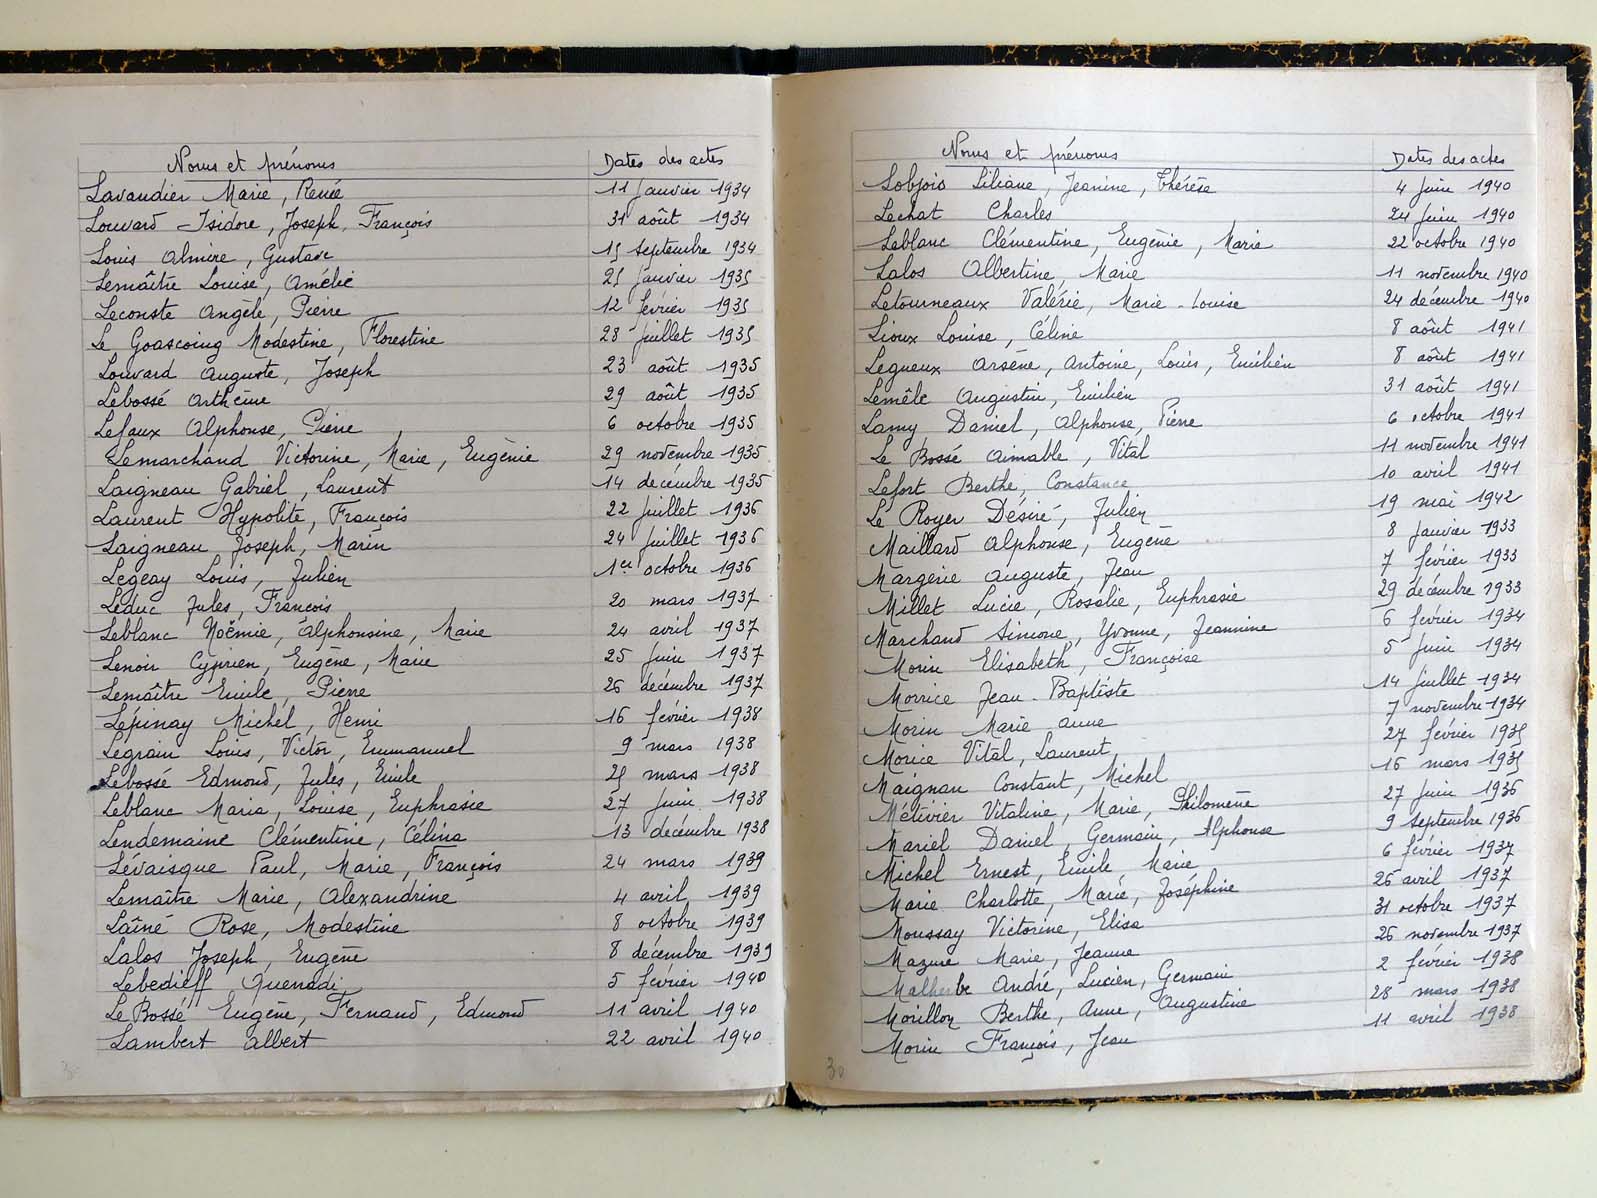 Noms et prénoms Dates des actes
Lavaudier Marie, Renée 11 janvier 1934
Louvard Isidore, Joseph, François 31 août 1934
Louis Almire, Gustave 15 septembre 1934
Lemaître Louise, Amélie 25 janvier 1935
Leconste Angèle, Pierre 12 février 1935
Le Goascoing Modestine, Florestine 28 juillet 1935
Louvard Auguste, Joseph 23 août 1935
Lebossé Arthème 29 août 1935
Lefaux Alphonse, Pierre 6 octobre 1935
Lemarchand Victorine, Marie, Eugènie 29 novembre 1935
Laigneau Gabriel, Laurent 14 decémbre 1935
Laurent Hypolite, François 22 juillet 1936
Laigneau Joseph, Marin 24 juillet 1936
Legeay Louis, Julien 1er octobre 1936
Leduc Jules, François 20 mars 1937
Leblanc Noëmie, Alphonsine, Marie 24 avril 1937
Lenoir Cyprien, Eugène, Marie 25 juin 1937
Lemaître Emile, Pierre 26 decémbre 1937
Lépinay Michel, Henri 16 février 1938
Legrain Louis, Victor, Emmanuel 9 mars 1938
Lebossé Edmond, Jules, Emile 25 mars 1938
Leblanc Maria, Louise, Euphrasie 27 juin 1938
Lendemaine Clémentine, Célina 13 decémbre 1938
Lévaisque Paul, Marie, François 24 mars 1939
Lemaître Marie, Alexandrine 4 avril 1939
Laîné Rose, Modestine 8 octobre 1939
Lalos Joseph, Eugène 8 decémbre 1939
Lebedieff Guenadi 5 février 1940
Le Bossé Eugène, Fernand, Edmond 11 avril 1940
Lambert Albert 22 avril 1940
Noms et prénoms Dates des actes
Lobjois Liliane, Jeanine, Thérèse 4 juin 1940
Lechat Charles 24 juin 1940
Leblanc Clémentine, Eugènie, Marie 22 octobre 1940
Lalos Albertine, Marie 11 novembre 1940
Letourneaux Valérie, Marie-Louise 24 decémbre 1940
Lioux Louise, Céline 8 août 1941
Legueux Arsène, Antoine, Louis, Emilien 8 août 1941
Lemêle Augustin, Emilien 31 août 1941
Lamy Daniel, Alphonse, Pierre 6 octobre 1941
Le Bossé Aimable, Vital 11 novembre 1941
Lefort Berthe, Constance 10 avril 1941
Le Royer Désiré, Julien 19 mai 1942
Maillard Alphonse, Eugène 8 janvier 1933
Margerie Auguste, Jean 7 février 1933
Millet Lucie, Rosalie, Euphrasie 29 décembre 1933
Marchand Simone, Yvonne, Jeannine 6 février 1934
Morin Elisabeth, Françoise 5 juin 1934
Morrice Jean-Baptiste 14 juillet 1934
Morin Marie Anne 7 novembre 1934
Morice Vital, Laurent 27 février 1935
Maignan Constant, Michel 16 mars 1935
Métivier Vitaline, Marie, Philomène 27 juin 1936
Mariel Daniel, Germain, Alphonse 9 septembre 1936
Michel Ernest, Emile Marie 6 février 1937
Marie Charlotte, Marie, Joséphine 26 avril 1937
Moussay Victorine, Elisa 31 octobre 1937
Mazure Marie, Jeanne 26 novembre 1937
Malherbe André, Lucien, Germain 2 février 1938
Morillon Berthe, Anne, Augustine 28 mars 1938
Morin François, Jean 11 avril 1938
30